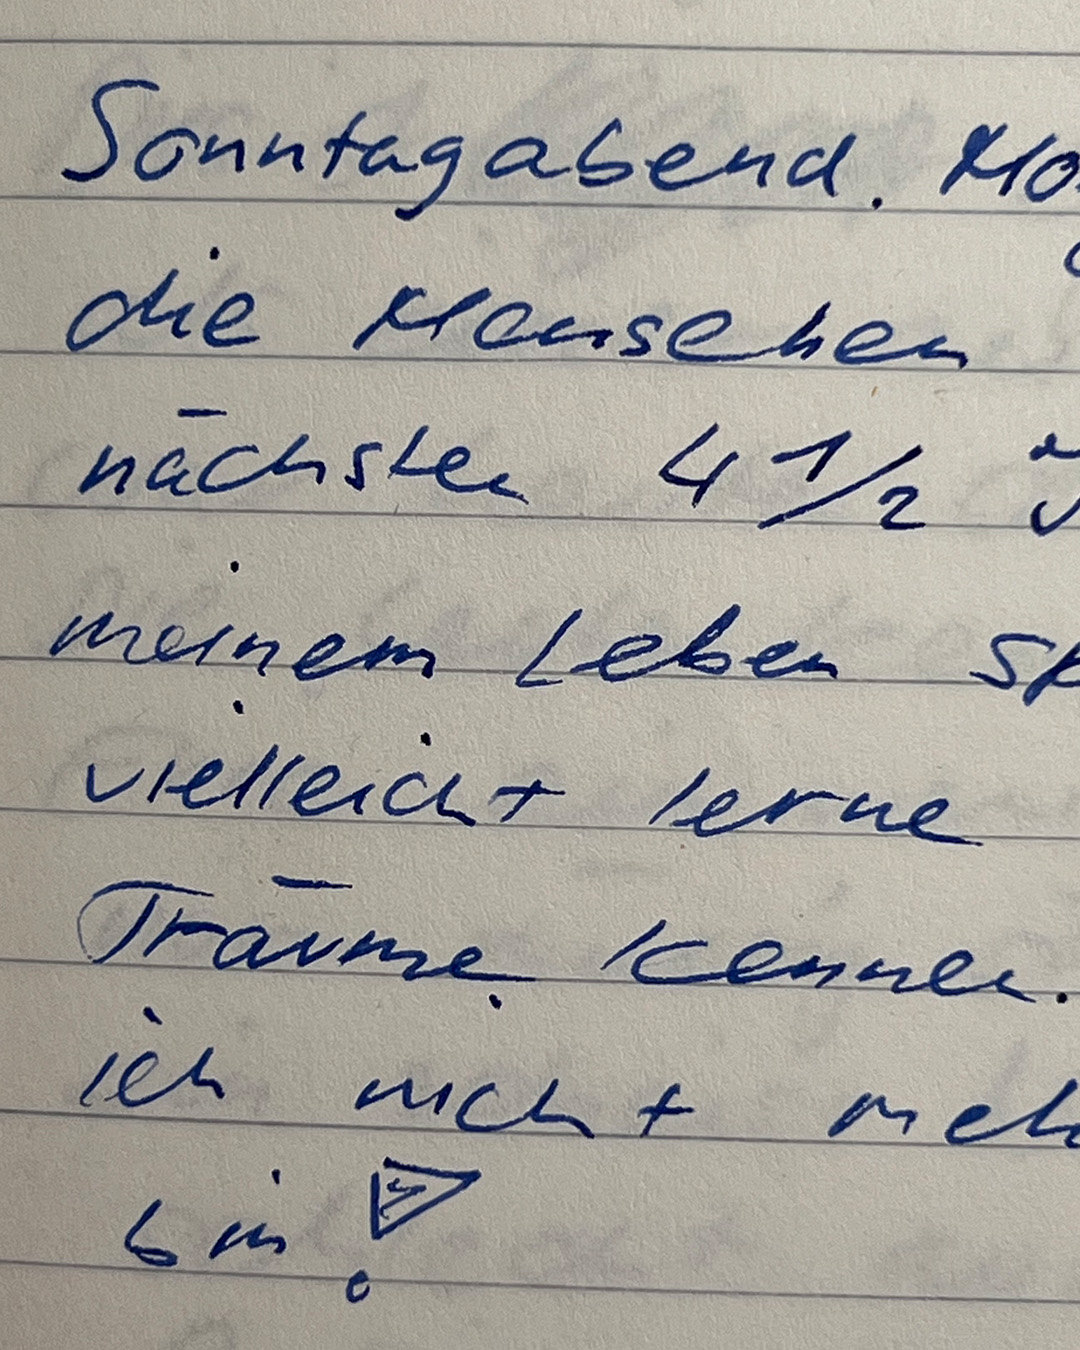 Sonntagabend. Mo
die Menschen
nächsten 4 1/2 J
meinem Leben sp
vielleicht lerne
Träume kennen.
ich nicht meh
bin!